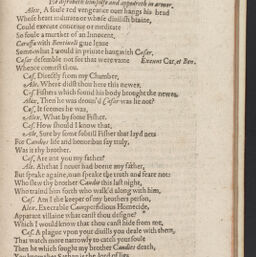 He disrobeth himselfe and appeareth in armor.
Alex. A soule red vengeance over hangs his head
Whose heart indurate or whose divilish braine,
Could execute contrive or meditate
So foule a murther of an Innocent,
Caraffa with Bentivoli give leave
Somewhat I would in private hange with Cæsar.
Cæsar desemble not Exeunt Car. et Ben.
Whence comst thou.
Cæs. Directly from my Chamber,
Alex. Where didst thou here this newes
Cæs. Fishers which found his body brought the newes,
Alex. Then he was drown'd Cæsar was he not?
Cæs. It seemes he was,
Alex. What by some Fisher.
Cæs. How should I know that,
Alex. Sure by some subtill Fisher that layd nets
For Candies life and honor I say truly,
Was it thy brother.
Cæs. Are not you my father?
Alex. Ah that I never had borne my father,
But speake againe, man speake the truth and feare not
Who slew thy brother Candie this last night,
Who trained him forth who walk'd along with him,
Cæs. Am I the keeper of my brothers person,
Alex. Execrable Cain perfidious Homecide,
Apparant villaine what canst thou designe?
Which I would know that thou canst hide from me,
Cæs. A plague upon your divills you deale with them,
That watch more narrowly to catch your soule
Then he which fought my brother Candies death,